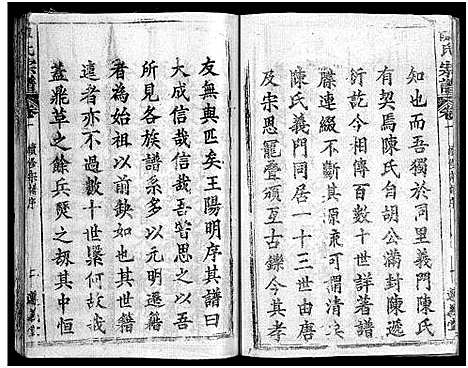 知也而吾獨於同里義門陳氏
有契焉陳氏自胡公滿封陳遞
衍訖今相傳百數十世詳著譜
牒連綴不斷其源永可謂清矣
陳氏義門同居一十三世由唐
及宋恩寵疊頒亙古鑠今其孝
友無與匹矣王陽明序其譜曰
大成信哉信哉吾嘗思之以吾
所見各族譜系多以元明遷籍
者為始祖而前缺如也其世籍
遠者亦不過數十世業何故哉
蓋鼎革之餘兵燹之刼其中恒